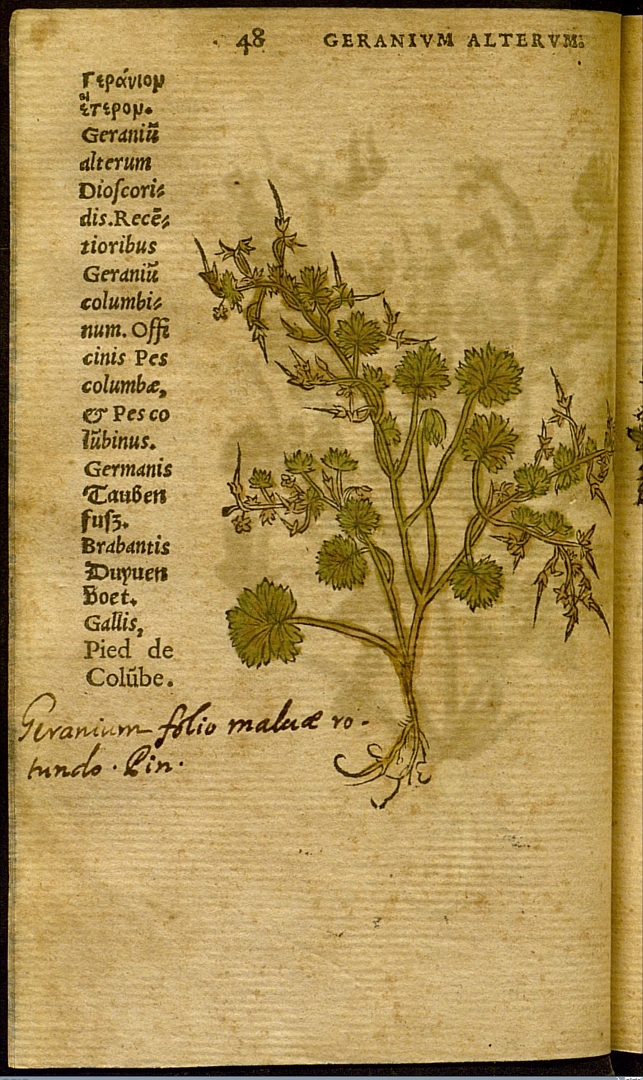 48 GERANIVM ALTERVM.
Γεράνιον
ἕτερον.
Geraniū
alterum
Dioſcori⸗
dis. Recē⸗
tioribus
Geraniū
columbi⸗
num. Offi
cinis Pes
columbæ,
& Pes co
lūbinus.
Germanis
Tauben
fuſʒ.
Brabantis
Duyuen
voet.
Gallis,
Pied de
Colūbe.
Geranium folio maluæ ro-
tundo. Pin.